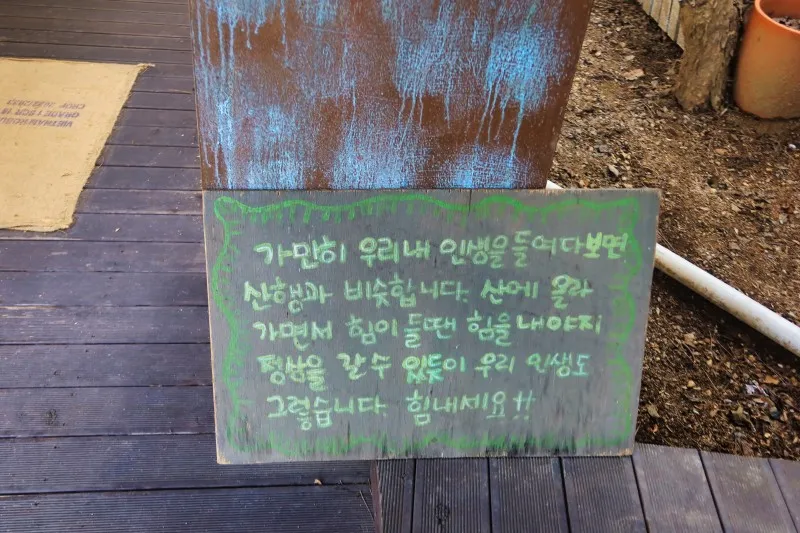 가만히 우리내 인생을 들여다보면
산행과 비슷합니다. 산에 올라
가면서 힘이 들땐 힘을 내야지
정상을 갈 수 있듯이 우리 인생도
그렇습니다. 힘내세요!!
GRADE 1 SCR 18